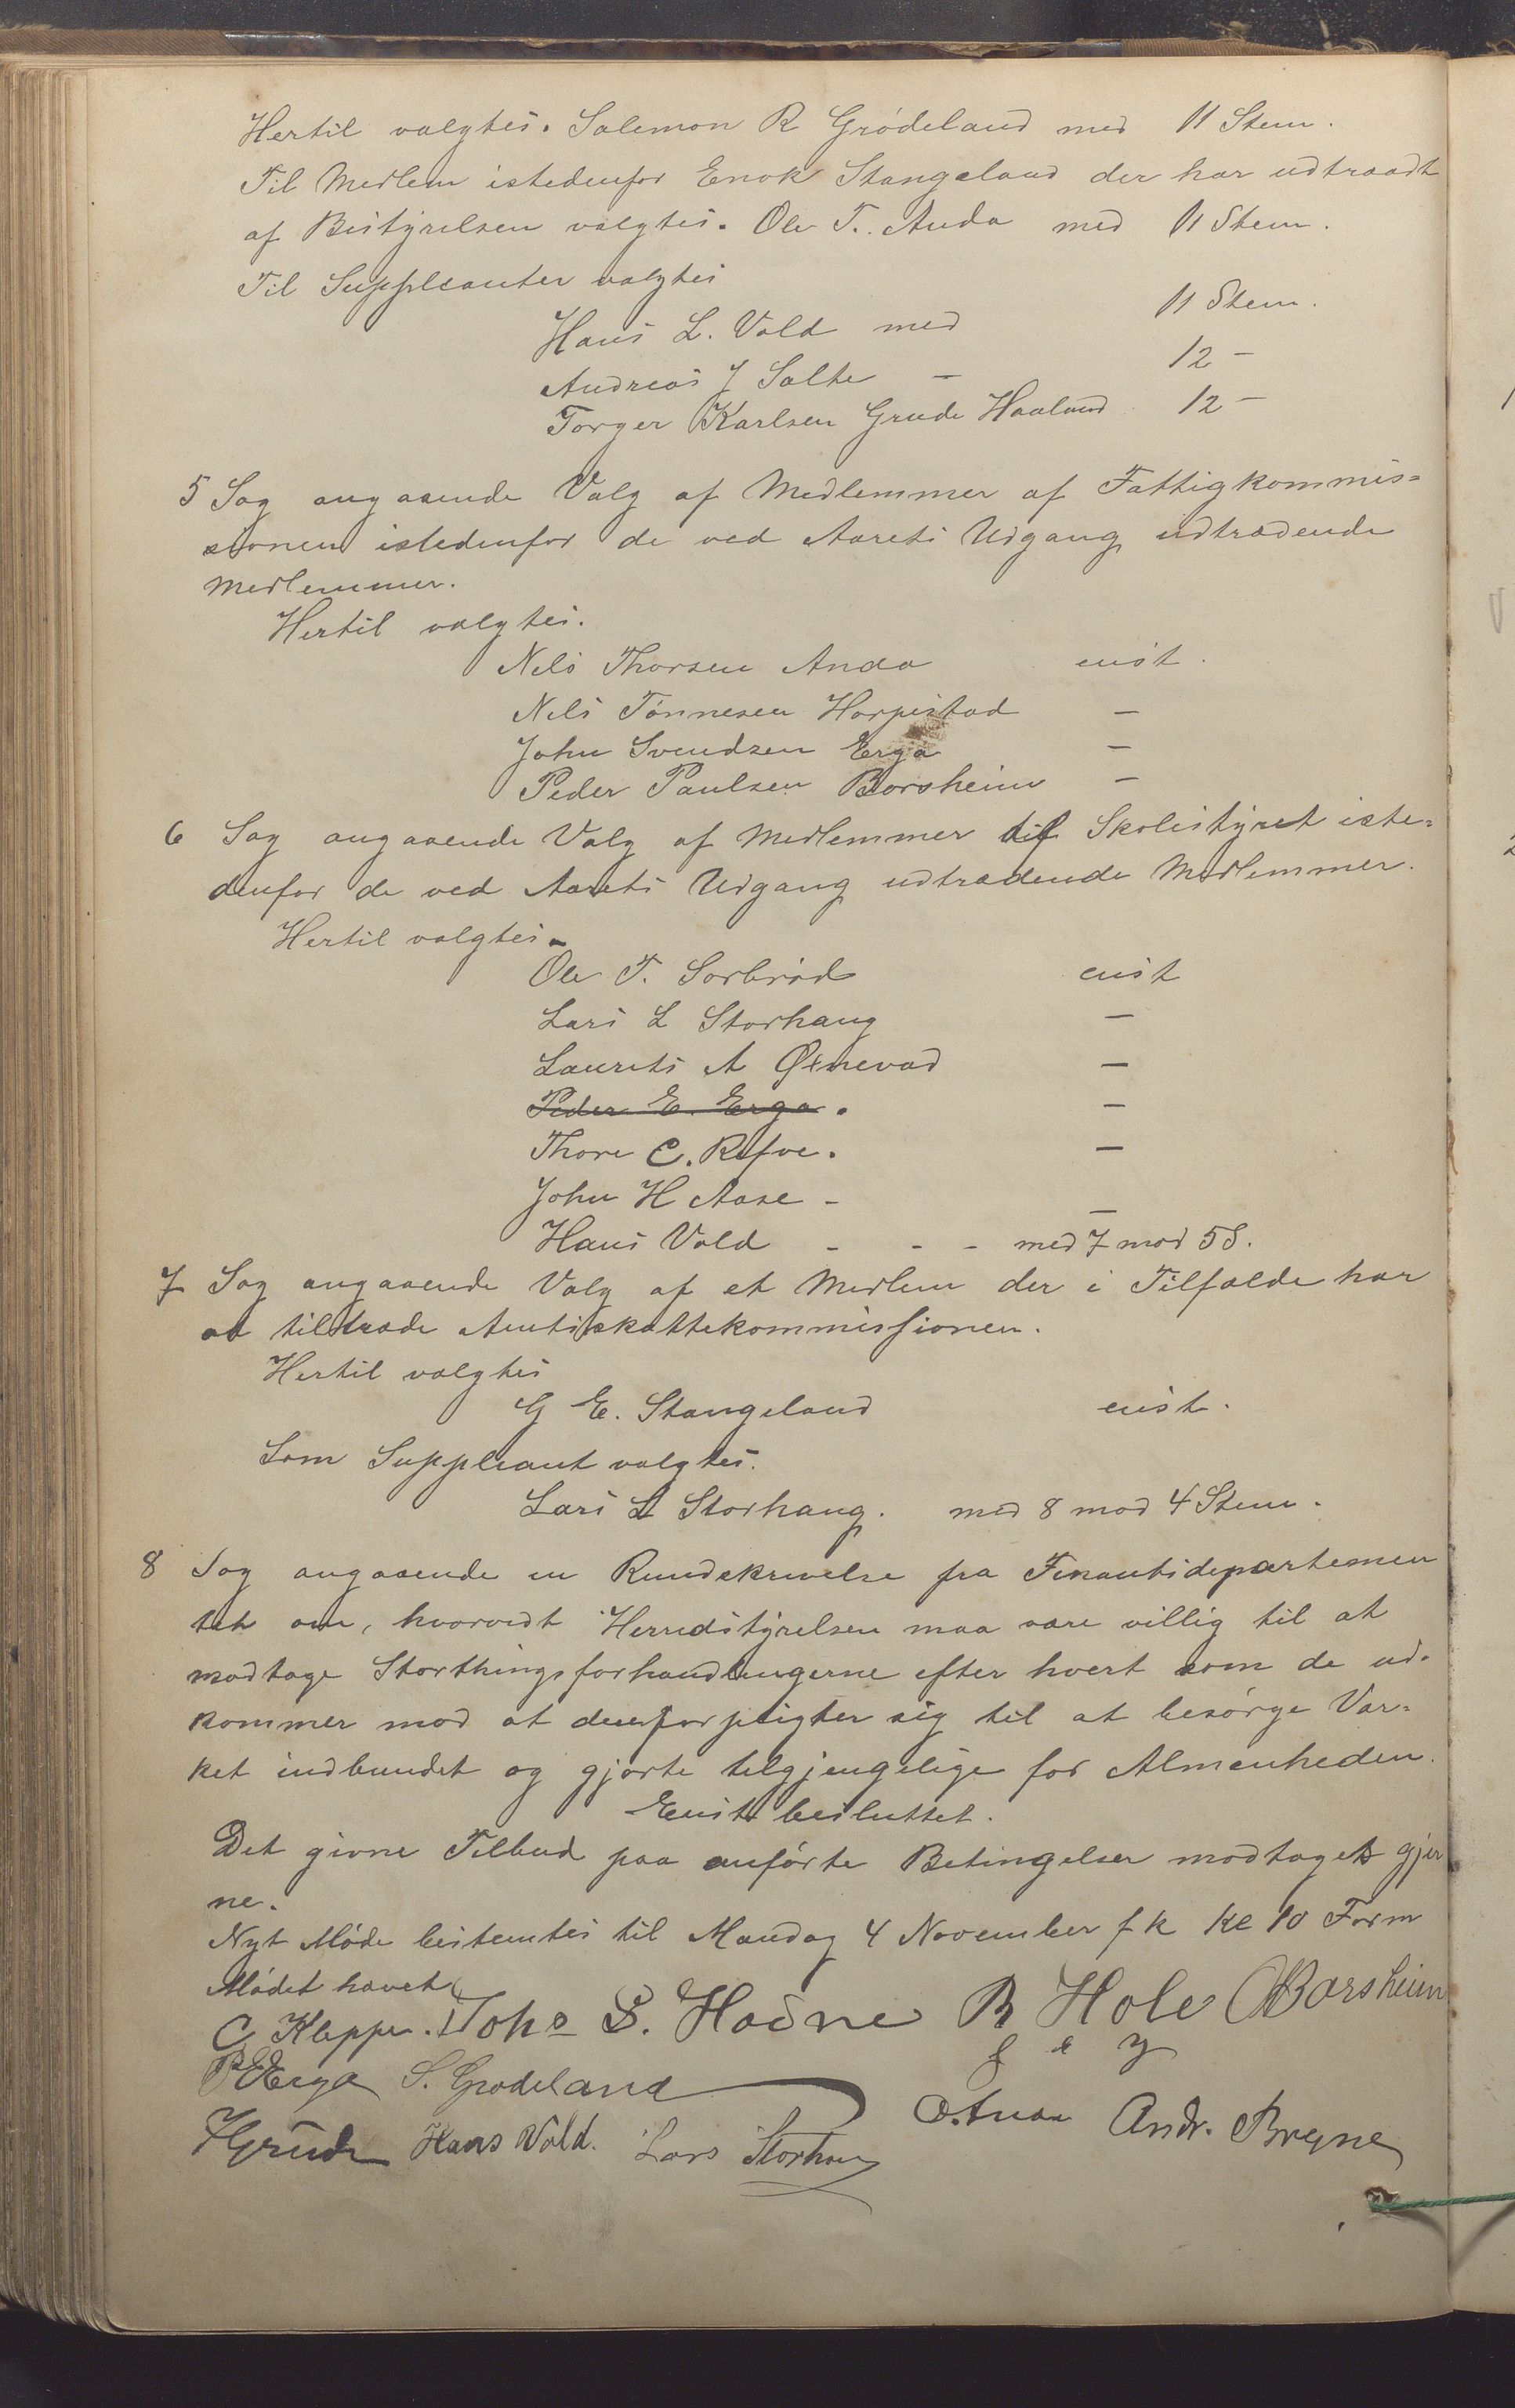 Hertil valgtes. Salemon R Grødeland med 11 Stem.
Til Medlem istedenfor Enok Stangeland der har udtraadt
af Bestyrelsen valgtes. Ole T. Anda med 11 Stem.
Til Suppleanter valgtes
Hans L. Vold med 11 Stem.
Andreas J Salte — 12 –
Torger Karlsen Grude Haaland 12 –
5 Sag angaaende Valg af Medlemmer af Fattigkommis=
sionen istedenfor de ved Aarets Udgang udtrædende
Medlemmer.
Hertil valgtes.
Nils Thorsen Anda enst.
Nils Tönnesen Horpestad —
John Svendsen Erga —
Peder Paulsen Borsheim —
6 Sag angaaende Valg af Medlemmer til Skolestyret iste=
denfor de ved Aarets Udgang udtrædende Medlemmer.
Hertil valgtes.
Ole T. Sørbrød enst
Lars L Storhaug —
Laurits A Øxnevad —
Peder E. Erga. —
Thore C. Refve. —
John H Aase – —
Hans Vold - - - med 7 mod 5 S.
7 Sag angaaende Valg af et Medlem der i Tilfælde har
at tiltræde Amtsskattekommissionen.
Hertil valgtes
G E. Stangeland enst.
Som Suppleant valgtes.
Lars L Storhaug. med 8 mod 4 Stem.
8 Sag angaaende en Rundskrivelse fra Finantsdepartemen
tet om, hvorvidt Herredstyrelsen maa være villig til at
modtage Storthingsforhandlingerne efter hvert som de ud-
kommer mod at den forpligter sig til at besørge Vær=
ket indbundet og gjorte tilgjengelige for Almenheden.
Enst besluttet.
Det givne Tilbud paa anførte Betingelser modtages gjer
ne.
Nyt Møde bestemtes til Mandag 4 November f k Kl 10 Form
Mødet hævet
G Kleppe. Johs S. Hodne R Hole Borsheim
P E Erga S. Grødeland
Grude Hans Vold. Lars Storhaug Andr. Bryne